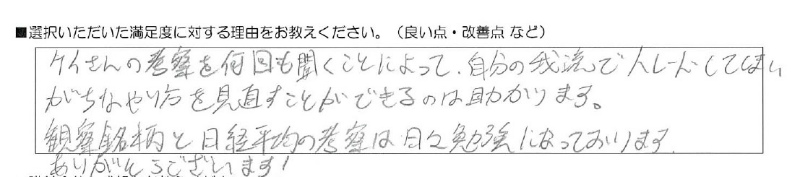 ■選択いただいた満足度に対する理由をお教えください。（良い点・改善点 など）
ケイさんの考察を何回も聞くことによって、自分の我流でトレードしてしまい
がちなやり方を見直すことができるのは助かります。
観察銘柄と日経平均の考察は日々勉強になっております。
ありがとうございます！